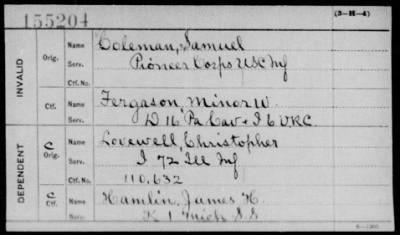 155204
(3-H-4)
INVALID
Orig.
Name Coleman, Samuel
Serv. Pioneer Corps USC Inf
Ctf. No.
Ctf.
Name Fergason, Minor W.
Serv. D 16 Pa Cav + I 6 VRC
DEPENDENT
C
Orig.
Name Lovewell, Christopher
Serv. I 72 Ill Inf
Ctf. No. 110,632
C
Ctf.
Name Hamlin, James H.
Serv. K 1 Mich S S